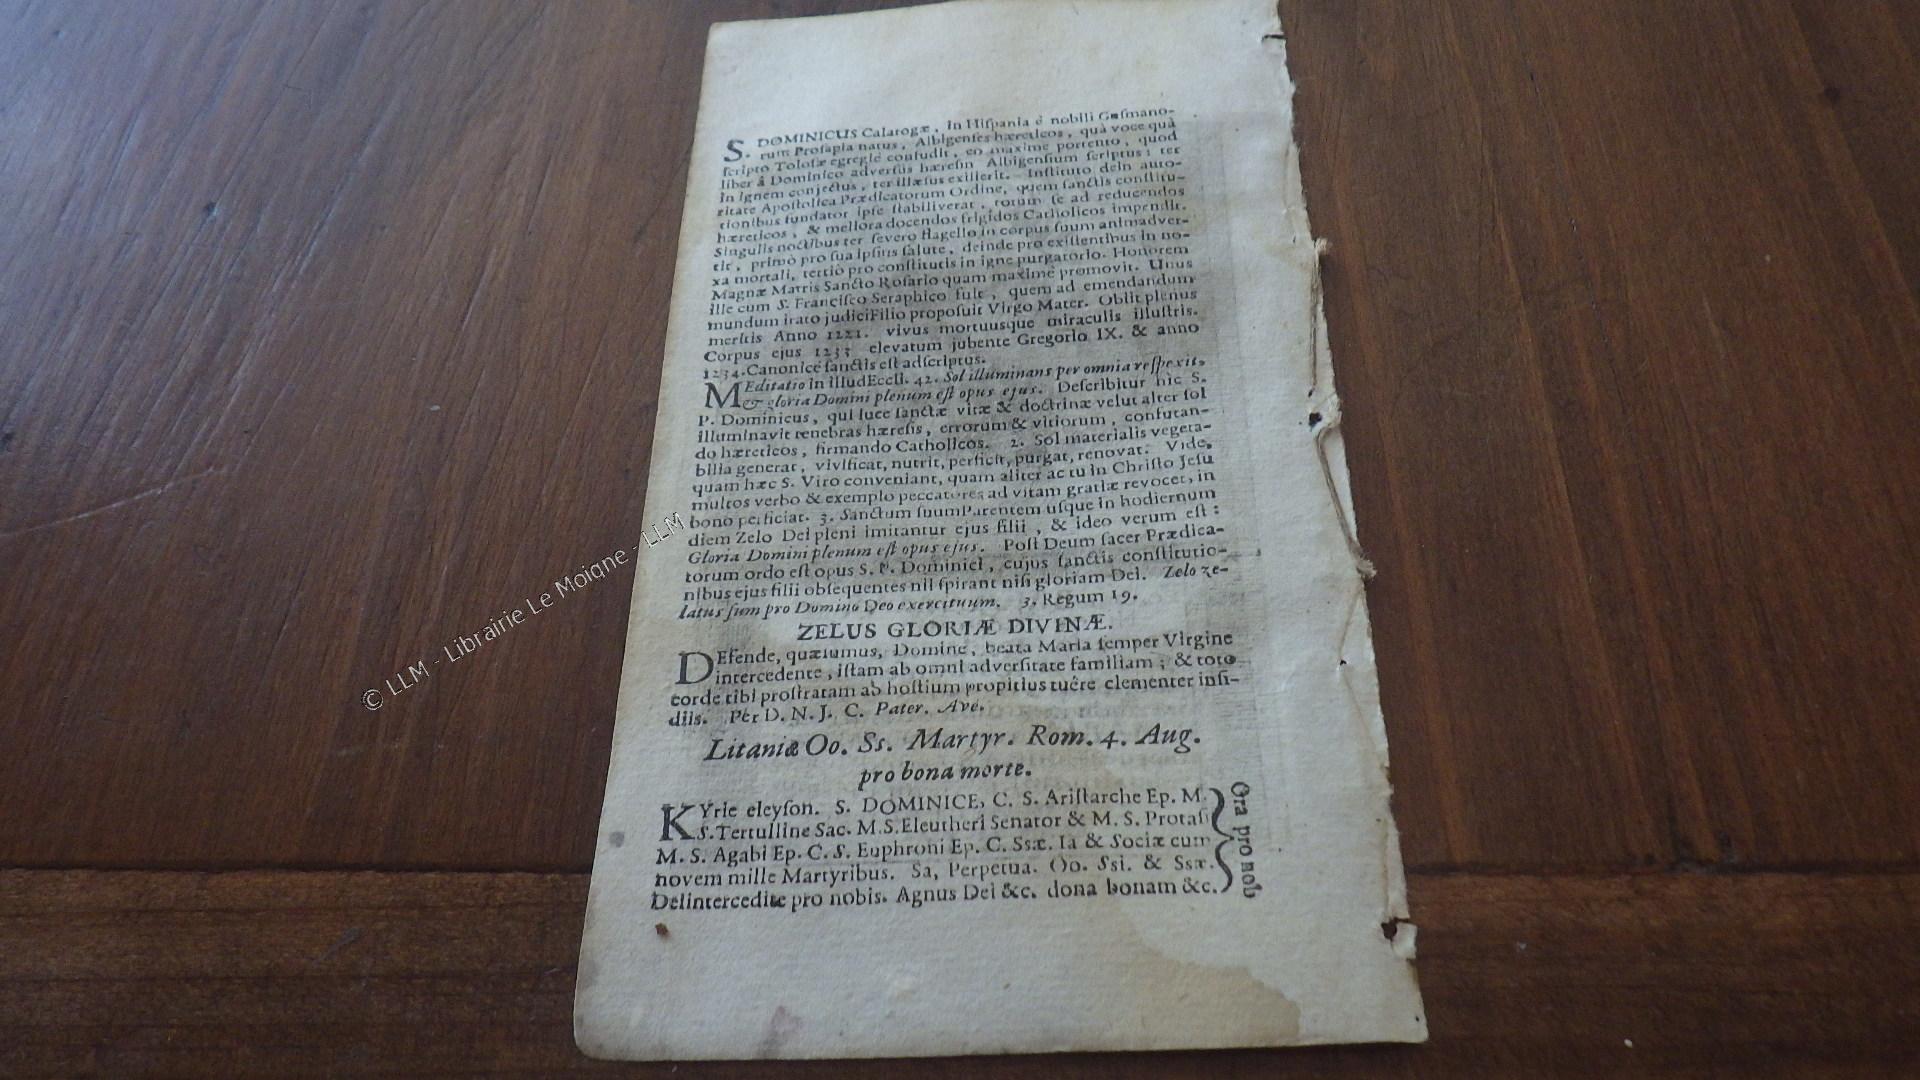 S. DOMINICUS Calarogæ, in Hiſpania è nobili Guſmano-
rum Proſapia natus, Albigenſes hæreticos, quà voce quà
ſcripto Toloſæ egregiè confudit, eo maxime portento, quod
liber â Dominico adverſùs hæreſin Albigenſium ſcriptus; ter
in ignem conjectus, ter illæſus exilierit. Inſtituto dein auto-
ritate Apoſtolica Prædicatorum Ordine, quem ſanctis conſtitu-
tionibus fundator ipſe ſtabiliverat, totum ſe ad reducendos
hæreticos, & meliora docendos frigidos Catholicos impendit.
Singulis noctibus ter ſevero flagello in corpus ſuum animadver-
tit, primò pro ſua ipſius ſalute, deinde pro exiſtentibus in no-
xa mortali, tertiò pro conſtitutis in igne purgatorio. Honorem
Magnæ Matris Sancto Roſario quam maximè promovit. Unus
ille cum S. Franciſco Seraphico fuit, quem ad emendandum
mundum irato judici Filio propoſuit Virgo Mater. Obiit plenus
meritis Anno 1221. vivus mortuusque miraculis illuſtris.
Corpus ejus 1233 elevatum jubente Gregorio IX. & anno
1234. Canonicè ſanctis eſt adſcriptus.
MEditatio in illud Eccli. 42. Sol illuminans per omnia reſpexit,
& gloria Domini plenum eſt opus ejus. Deſcribitur hic S.
P. Dominicus, qui luce ſanctæ vitæ & doctrinæ velut alter ſol
illuminavit tenebras hæreſis, errorum & vitiorum, confutan-
do hæreticos, firmando Catholicos. 2. Sol materialis vegeta-
bilia generat, vivificat, nutrit, perficit, purgat, renovat. Vide,
quam hæc S. Viro conveniant, quam aliter ac tu in Chriſto Jeſu
multos verbo & exemplo peccatores ad vitam gratiæ revocet, in
bono perficiat. 3. Sanctum ſuum Parentem uſque in hodiernum
diem Zelo Dei pleni imitantur ejus filii, & ideo verum eſt:
Gloria Domini plenum eſt opus ejus. Poſt Deum ſacer Prædica-
torum ordo eſt opus S. P. Dominici, cujus ſanctis conſtitutio-
nibus ejus filii obſequentes nil ſpirant niſi gloriam Dei. Zelo ze-
latus ſum pro Domino Deo exercituum. 3. Regum 19.
ZELUS GLORIÆ DIVINÆ.
DEfende, quæſumus, Domine, beata Maria ſemper Virgine
intercedente, iſtam ab omni adverſitate familiam; & toto
corde tibi proſtratam ab hoſtium propitius tuêre clementer inſi-
diis. Per D. N. J. C. Pater. Ave.
Litaniæ Oo. Ss. Martyr. Rom. 4. Aug.
pro bona morte.
KYrie eleyſon. S. DOMINICE, C. S. Ariſtarche Ep. M.
S. Tertulline Sac. M. S. Eleutheri Senator & M. S. Protaſi
M. S. Agabi Ep. C. S. Euphroni Ep. C. Ssæ. Ia & Sociæ cum
novem mille Martyribus. Sa, Perpetua. Oo. Ssi. & Ssæ.
Dei intercedite pro nobis. Agnus Dei &c. dona bonam &c.
Ora pro nob
© LLM - Librairie Le Moigne - LLM